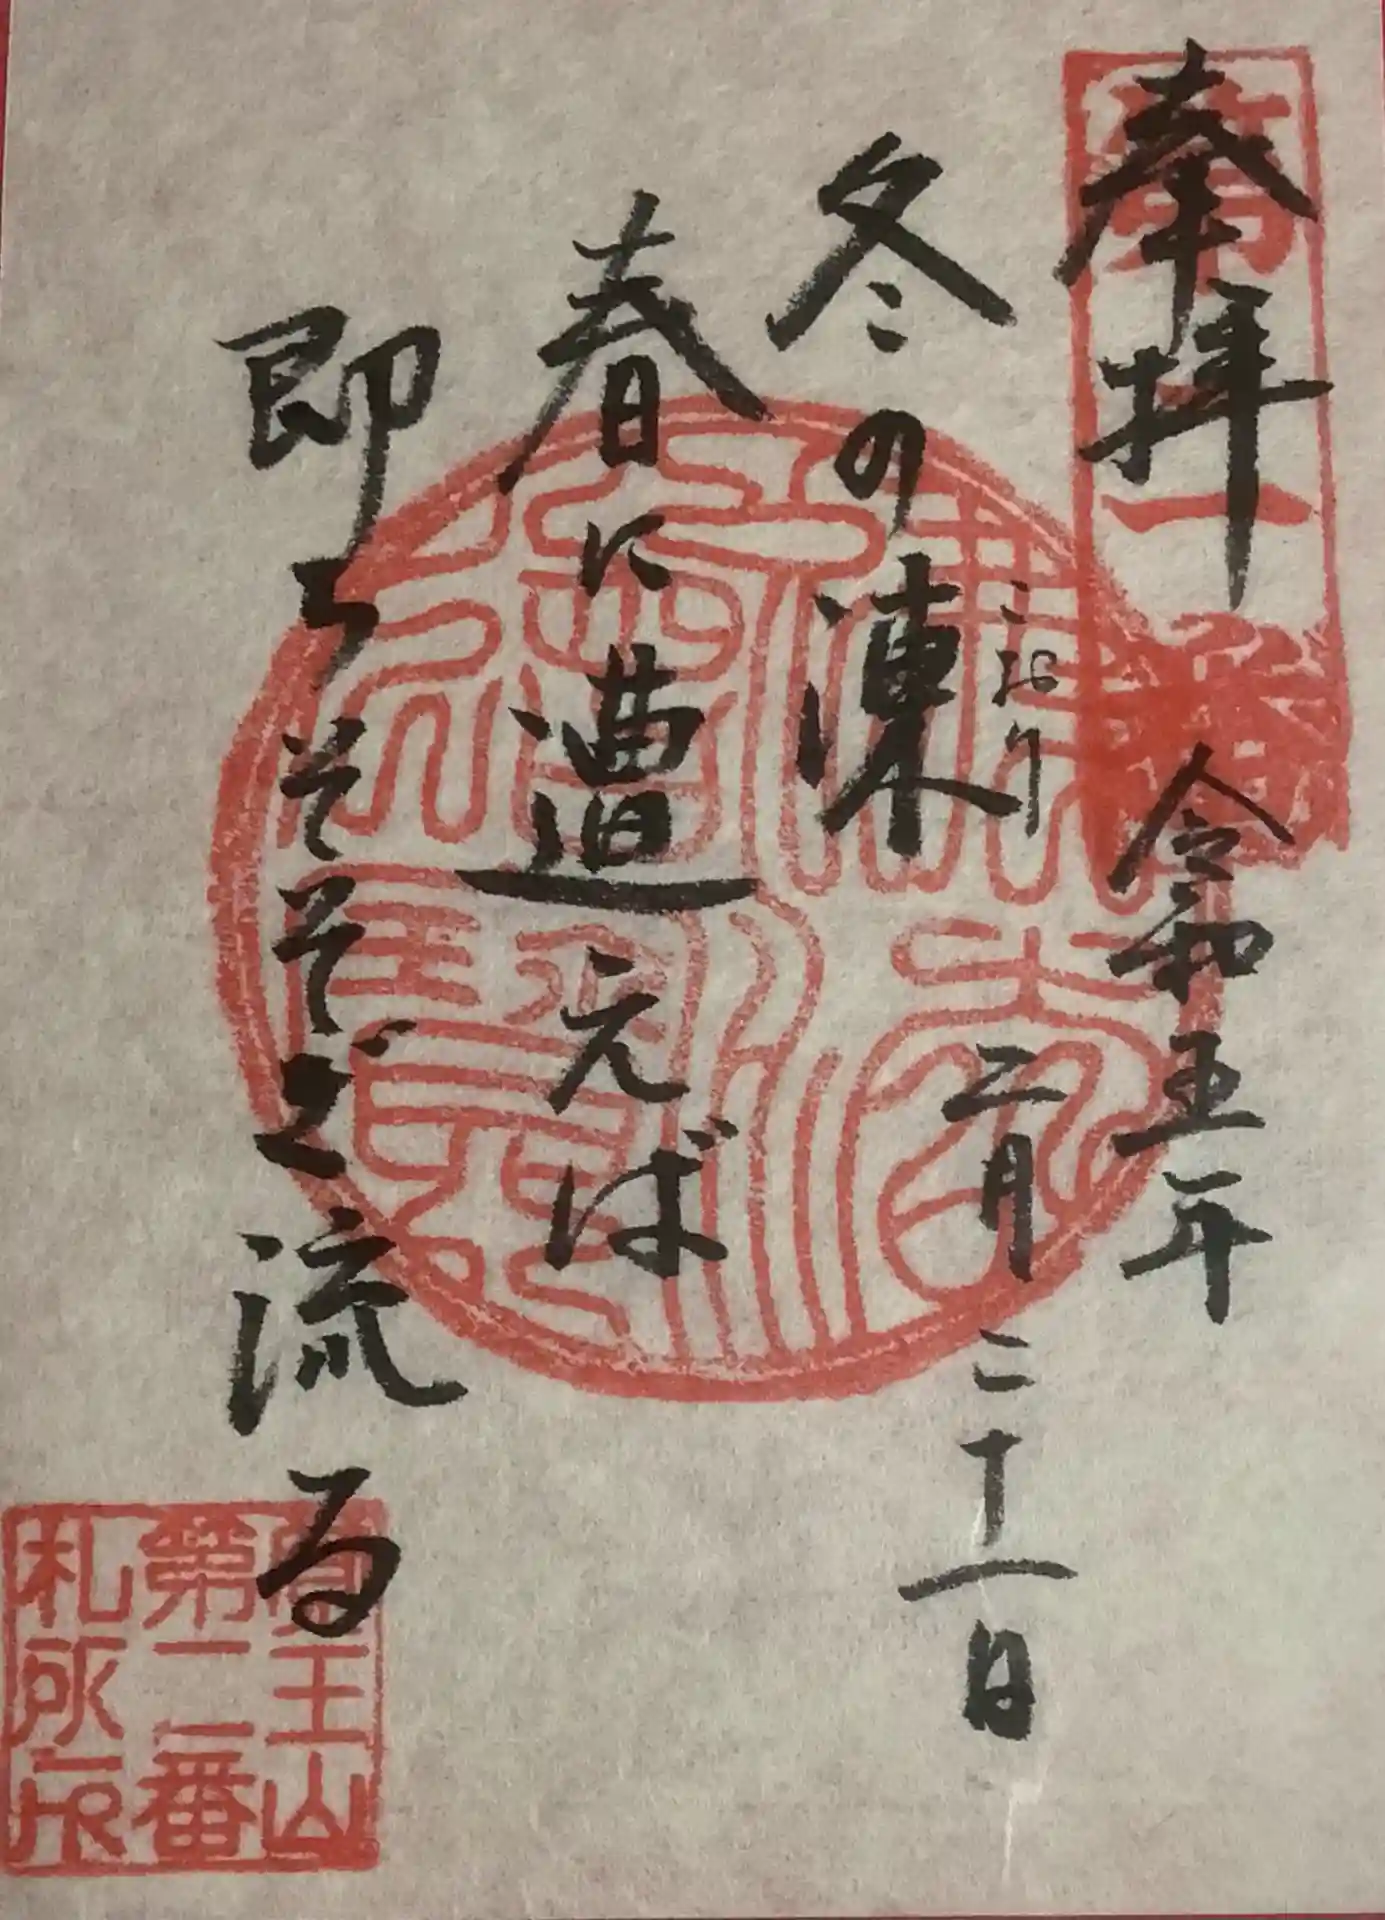 奉拝
第二番
令和五年
二月二十一日
冬の凍
こおり
春に遭えば
即ちそそぎ流る
王山
第二番
札所